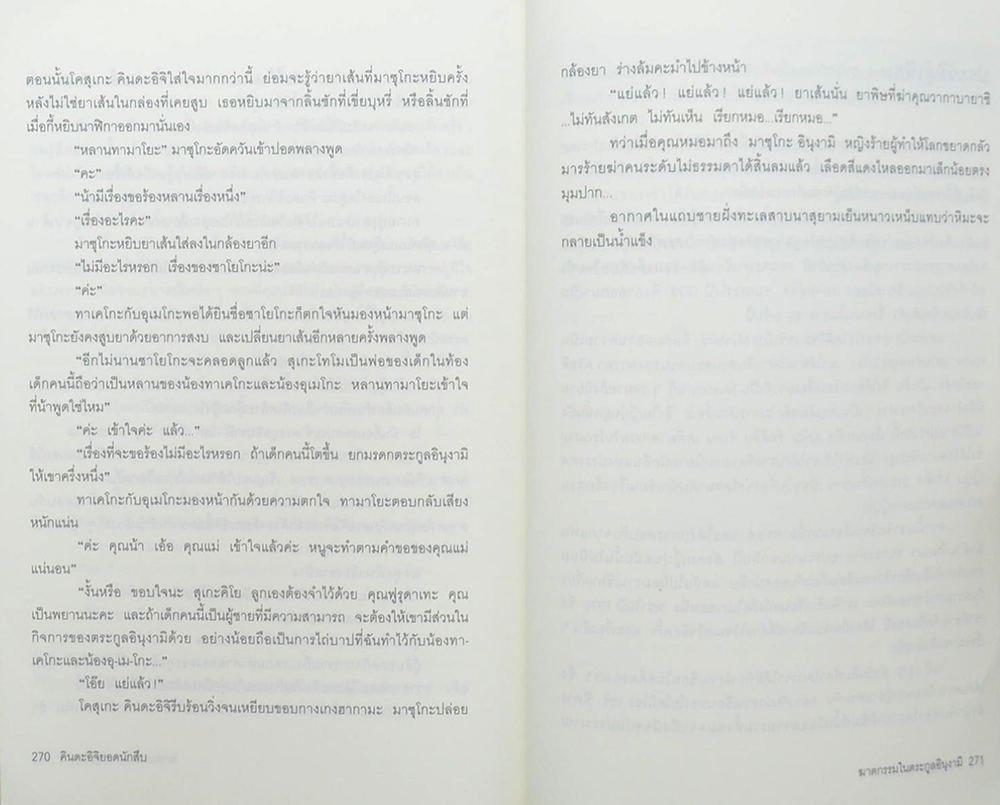 ตอนนั้นโคสุเกะ คินดะอิจิใส่ใจมากกว่านี้ ย่อมจะรู้ว่ายาเส้นที่มาซุโกะหยิบครั้ง
หลังไม่ใช่ยาเส้นในกล่องที่เคยสูบ เธอหยิบมาจากลิ้นชักที่เขี่ยบุหรี่ หรือลิ้นชักที่
เมื่อกี้หยิบนาฬิกาออกมานั่นเอง
“หลานทามาโยะ” มาซุโกะอัดควันเข้าปอดพลางพูด
“คะ”
“น้ามีเรื่องขอร้องหลานเรื่องหนึ่ง”
“เรื่องอะไรคะ”
มาซุโกะหยิบยาเส้นใส่ลงในกล้องยาอีก
“ไม่มีอะไรหรอก เรื่องของซาโยโกะน่ะ”
“ค่ะ”
ทาเคโกะกับอุเมโกะพอได้ยินชื่อซาโยโกะก็ตกใจหันมองหน้ามาซุโกะ แต่
มาซุโกะยังคงสูบยาด้วยอาการสงบ และเปลี่ยนยาเส้นอีกหลายครั้งพลางพูด
“อีกไม่นานซาโยโกะจะคลอดลูกแล้ว สุเกะโทโมเป็นพ่อของเด็กในท้อง
เด็กคนนี้ถือว่าเป็นหลานของน้องทาเคโกะและน้องอุเมโกะ หลานทามาโยะเข้าใจ
ที่น้าพูดใช่ไหม”
“ค่ะ เข้าใจค่ะ แล้ว...”
“เรื่องที่จะขอร้องไม่มีอะไรหรอก ถ้าเด็กคนนี้โตขึ้น ยกมรดกตระกูลอินุงามิ
ให้เขาครึ่งหนึ่ง”
ทาเคโกะกับอุเมโกะมองหน้ากันด้วยความตกใจ ทามาโยะตอบกลับเสียง
หนักแน่น
“ค่ะ คุณน้า เอ้อ คุณแม่ เข้าใจแล้วค่ะ หนูจะทำตามคำขอของคุณแม่
แน่นอน”
“งั้นหรือ ขอบใจนะ สุเกะคิโย ลูกเองต้องจำไว้ด้วย คุณฟูรุดาเทะ คุณ
เป็นพยานนะคะ และถ้าเด็กคนนี้เป็นผู้ชายที่มีความสามารถ จะต้องให้เขามีส่วนใน
กิจการของตระกูลอินุงามิด้วย อย่างน้อยถือเป็นการไถ่บาปที่ฉันทำไว้กับน้องทา-
เคโกะและน้องอุ-เม-โกะ...”
“โอ๊ย แย่แล้ว!”
โคสุเกะ คินดะอิจิรีบร้อนวิ่งจนเหยียบขอบกางเกงฮากามะ มาซุโกะปล่อย
270 คินดะอิจิยอดนักสืบ
กล้องยา ร่างล้มคะมำไปข้างหน้า
“แย่แล้ว! แย่แล้ว! แย่แล้ว! ยาเส้นนั้น ยาพิษที่ฆ่าคุณวากาบายาชิ
...ไม่ทันสังเกต ไม่ทันเห็น เรียกหมอ...เรียกหมอ...”
ทว่าเมื่อคุณหมอมาถึง มาซุโกะ อินุงามิ หญิงร้ายผู้ทำให้โลกขยาดกลัว
มารร้ายฆ่าคนระดับไม่ธรรมดาได้สิ้นลมแล้ว เลือดสีแดงไหลออกมาเล็กน้อยตรง
มุมปาก...
อากาศในแถบชายฝั่งทะเลสาบนาสุยามเย็นหนาวเหน็บแทบว่าหิมะจะ
กลายเป็นน้ำแข็ง
ฆาตกรรมในตระกูลอินุงามิ 271